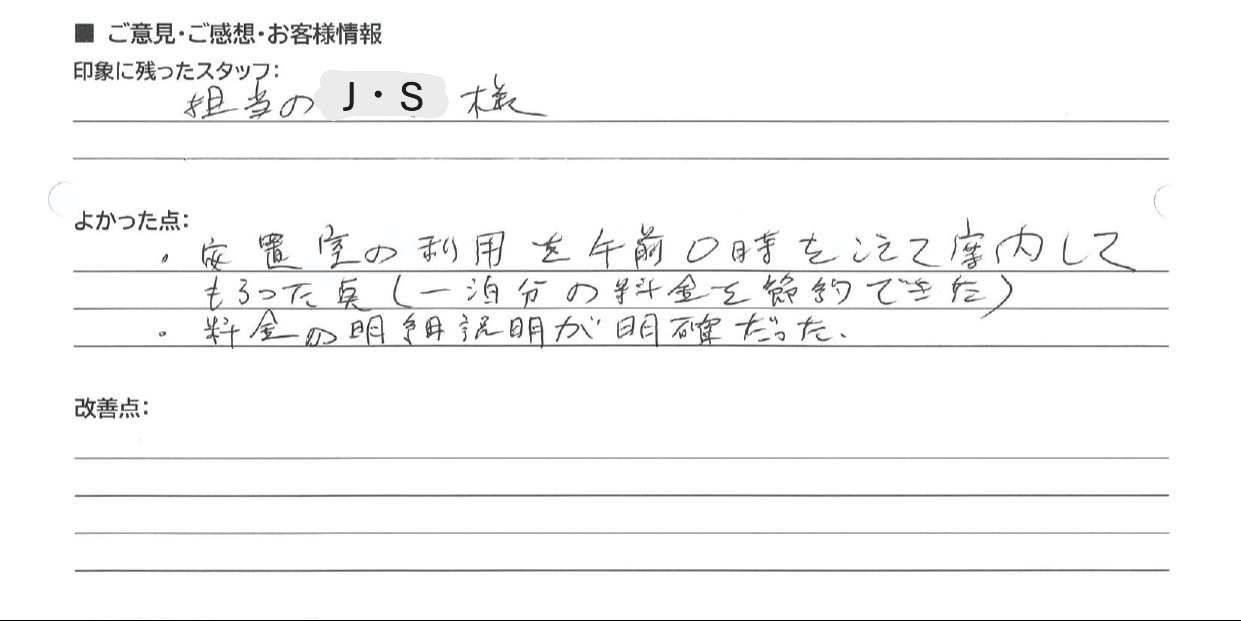 ■ ご意見・ご感想・お客様情報
印象に残ったスタッフ：
担当の J・S 様
よかった点：
・安置室の利用を午前0時を 案内して
もらった点（一泊分の料金を節約できた）
・料金の明細説明が明確だった．
改善点：